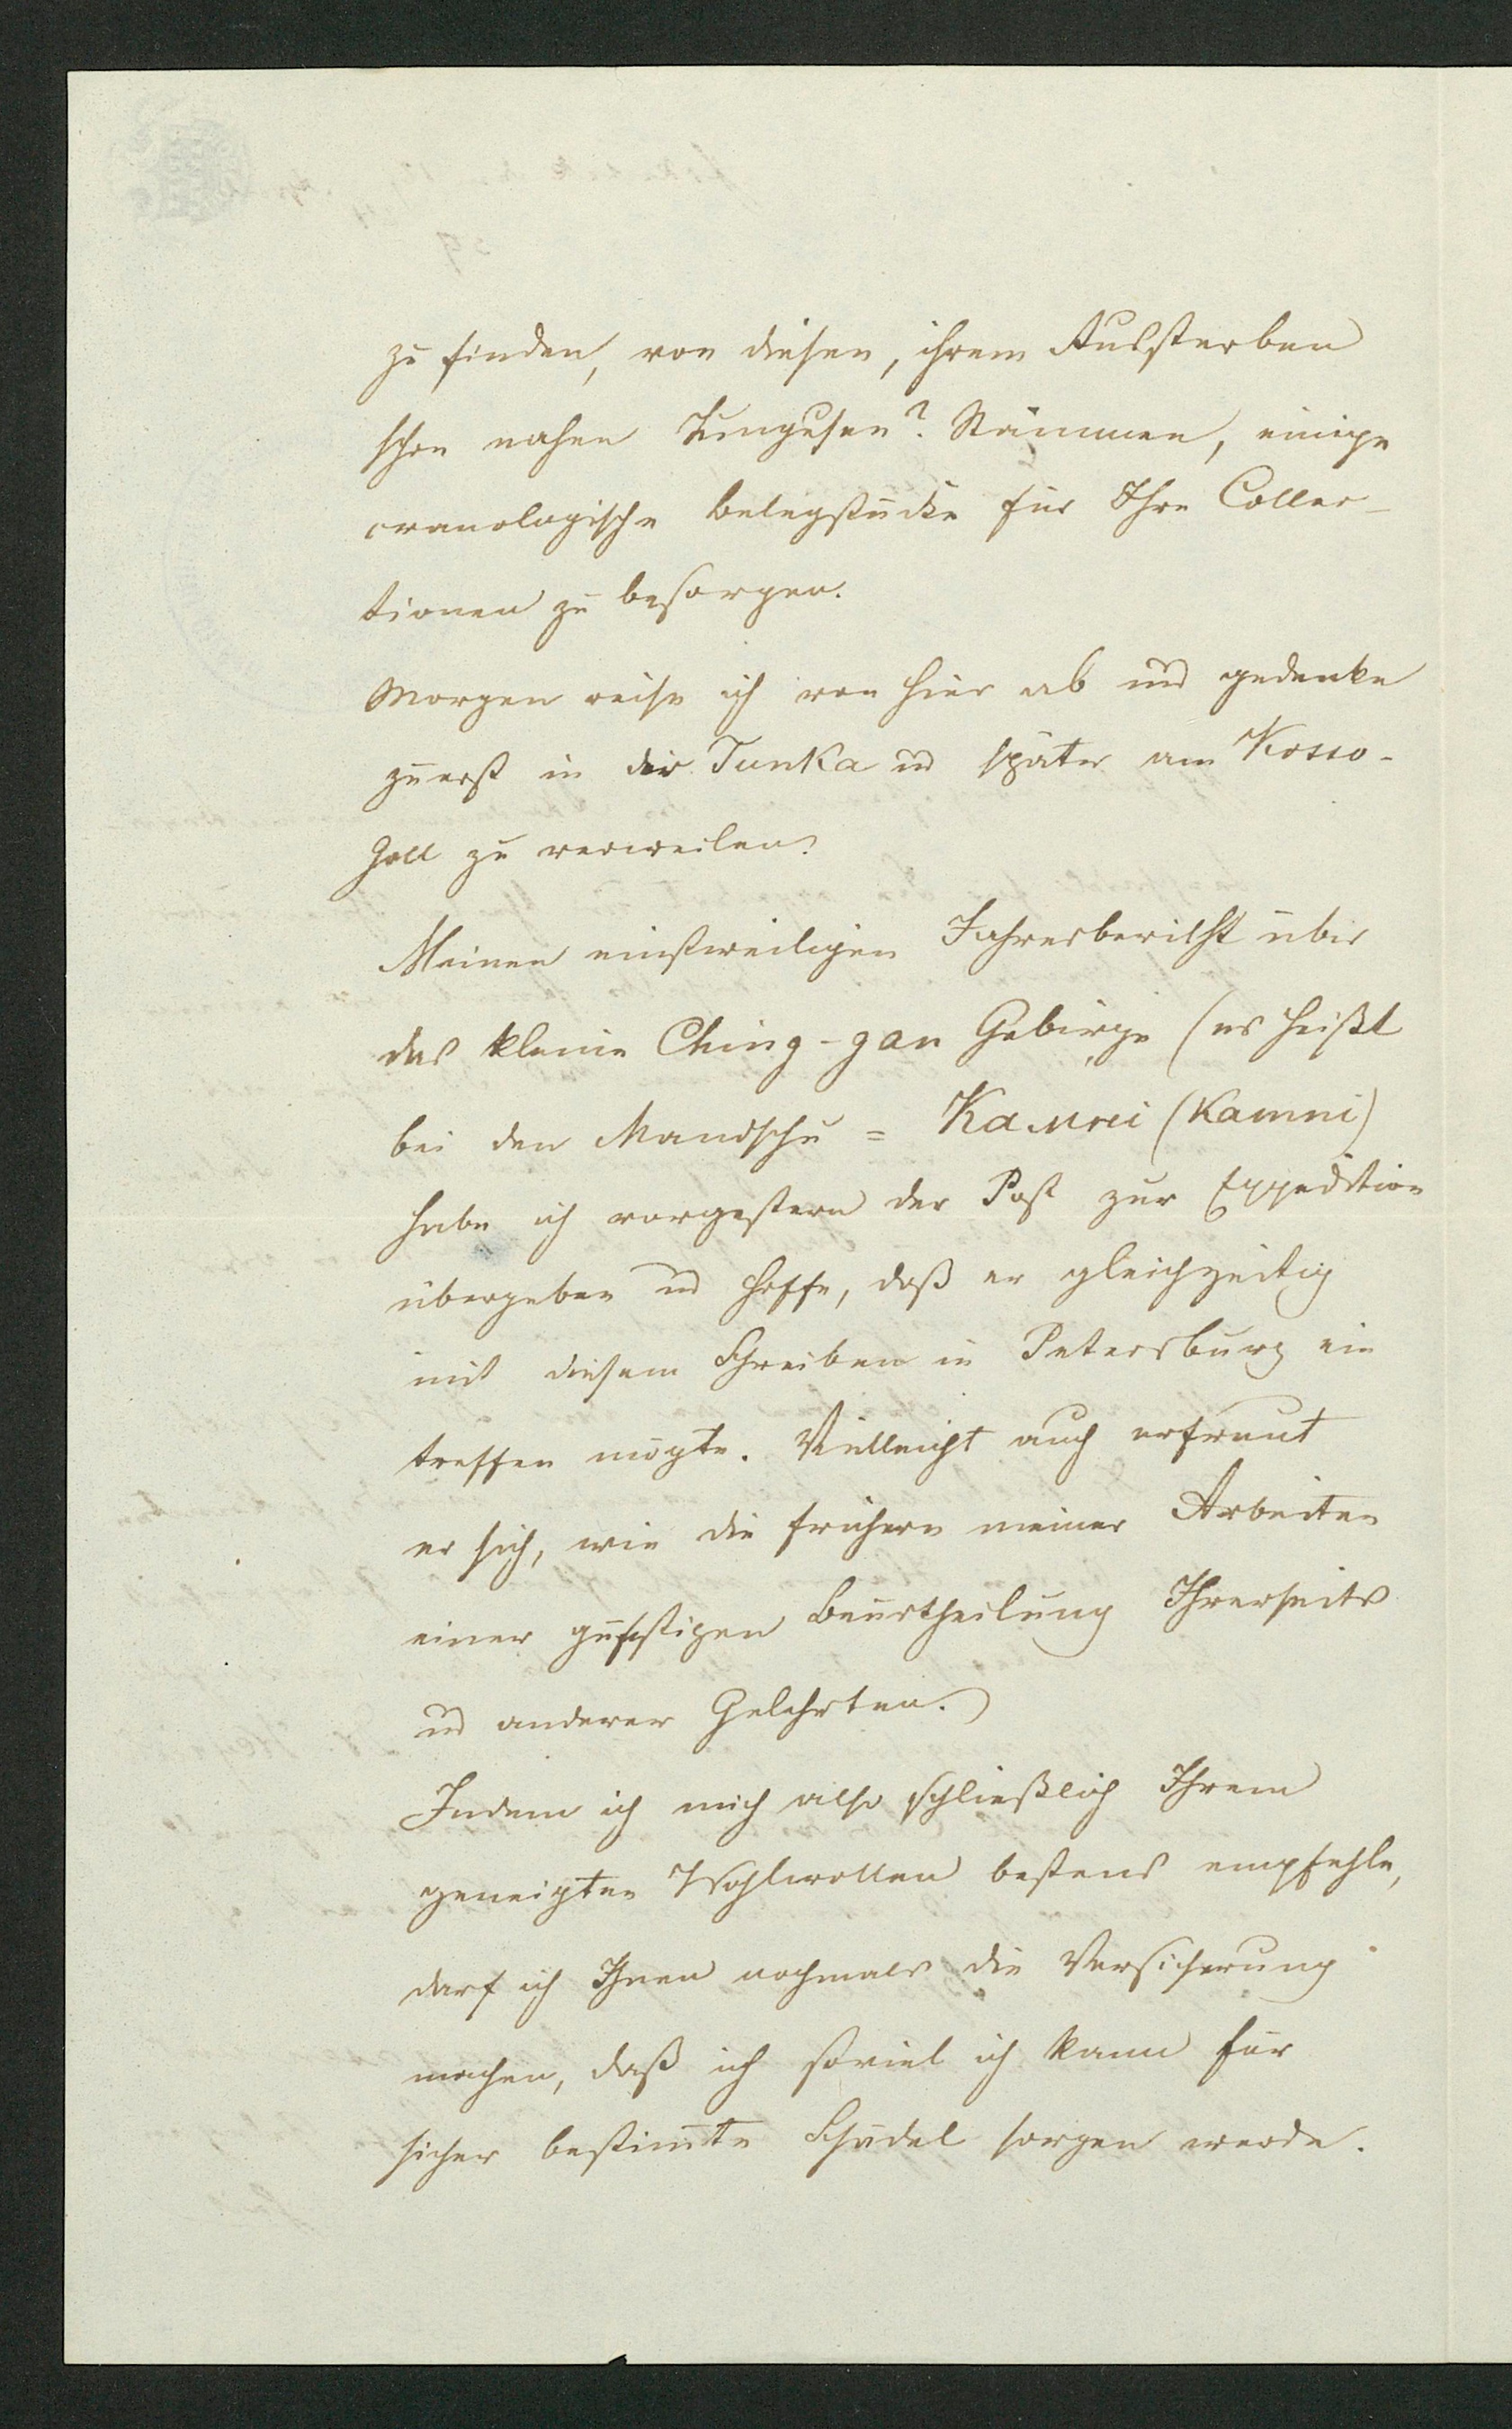 zu finden, von diesen, ihrem Aussterben
schon nahen Tungusen? Stämmen, einige
cranologische Belegstücke für Ihre Collec-
tionen zu besorgen.
Morgen reise ich von hier ab und gedenke
zuerst in der Tunka u später am Kosso-
Goll zu verweilen.
Meinen einstweiligen Jahresbericht über
das kleine Ching-gan Gebirge (es heißt
bei den Mandschu = Камni (Kamni)
habe ich vorgestern der Post zur Expedition
übergeben u hoffe, daß er gleichzeitig
mit diesem Schreiben in Petersburg ein
treffen mögte. Vielleicht auch erfreut
er sich, wie die frühern meiner Arbeiten
einer günstigen Beurtheilung Ihrerseits
u anderer Gelehrten.
Indem ich mich also schließlich Ihrem
geneigten Wohlwollen bestens empfehle,
darf ich Ihnen nochmals die Versicherung
machen, daß ich soviel ich kann für
sicher bestimte Schädel sorgen werde.